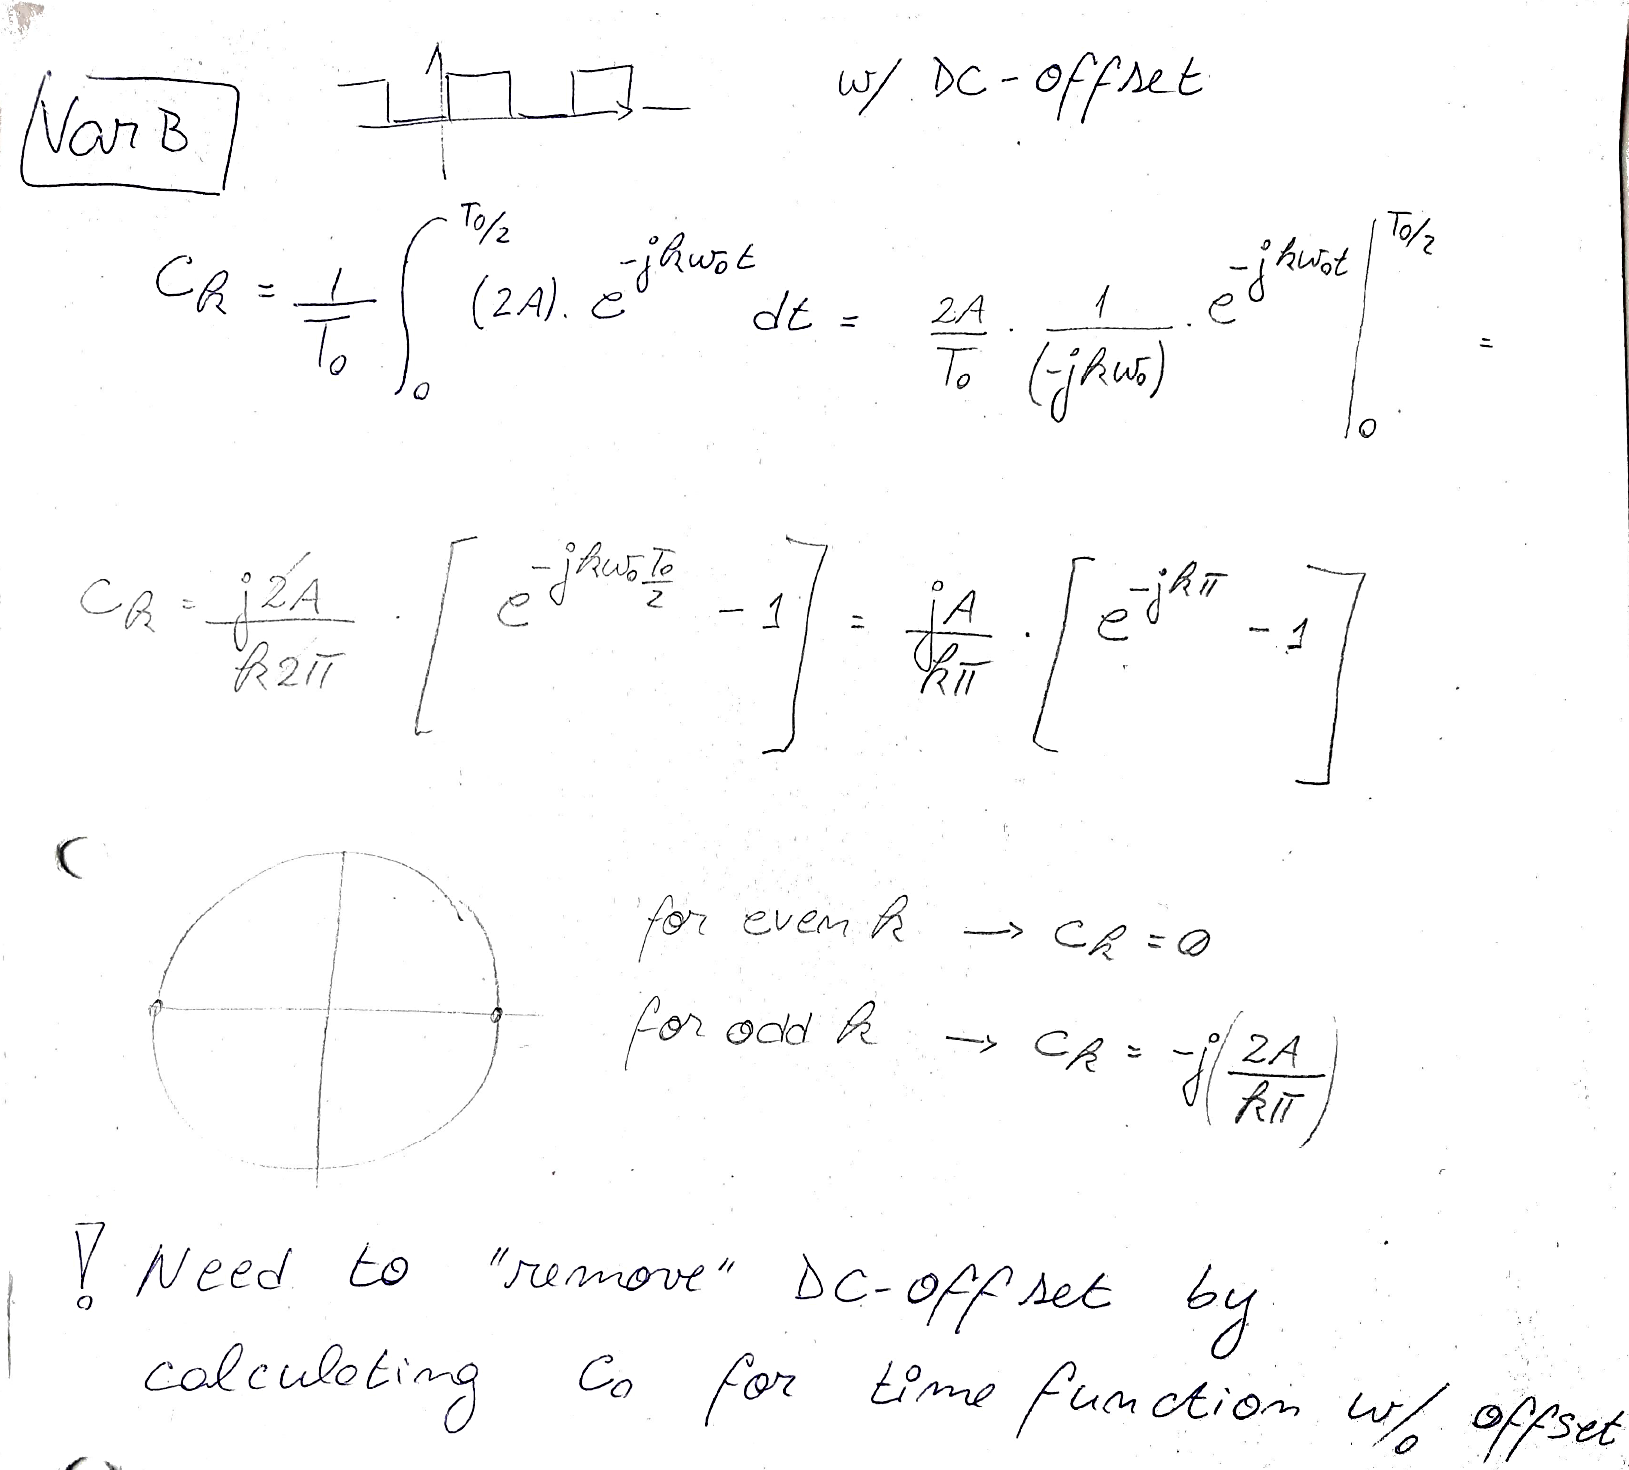 Var B w/ DC-offset
C_k = 1/T_0 ∫_0^{T_0/2} (2A) · e^{-jkω_0t} dt = 2A/T_0 · 1/(-jkω_0) · e^{-jkω_0t} |_0^{T_0/2} =
C_k = j2A/k2π · [e^{-jkω_0 T_0/2} - 1] = jA/kπ · [e^{-jkπ} - 1]
for even k → C_k = 0
for odd k → C_k = -j(2A/kπ)
! Need to "remove" DC-offset by
calculating C_0 for time function w/o offset